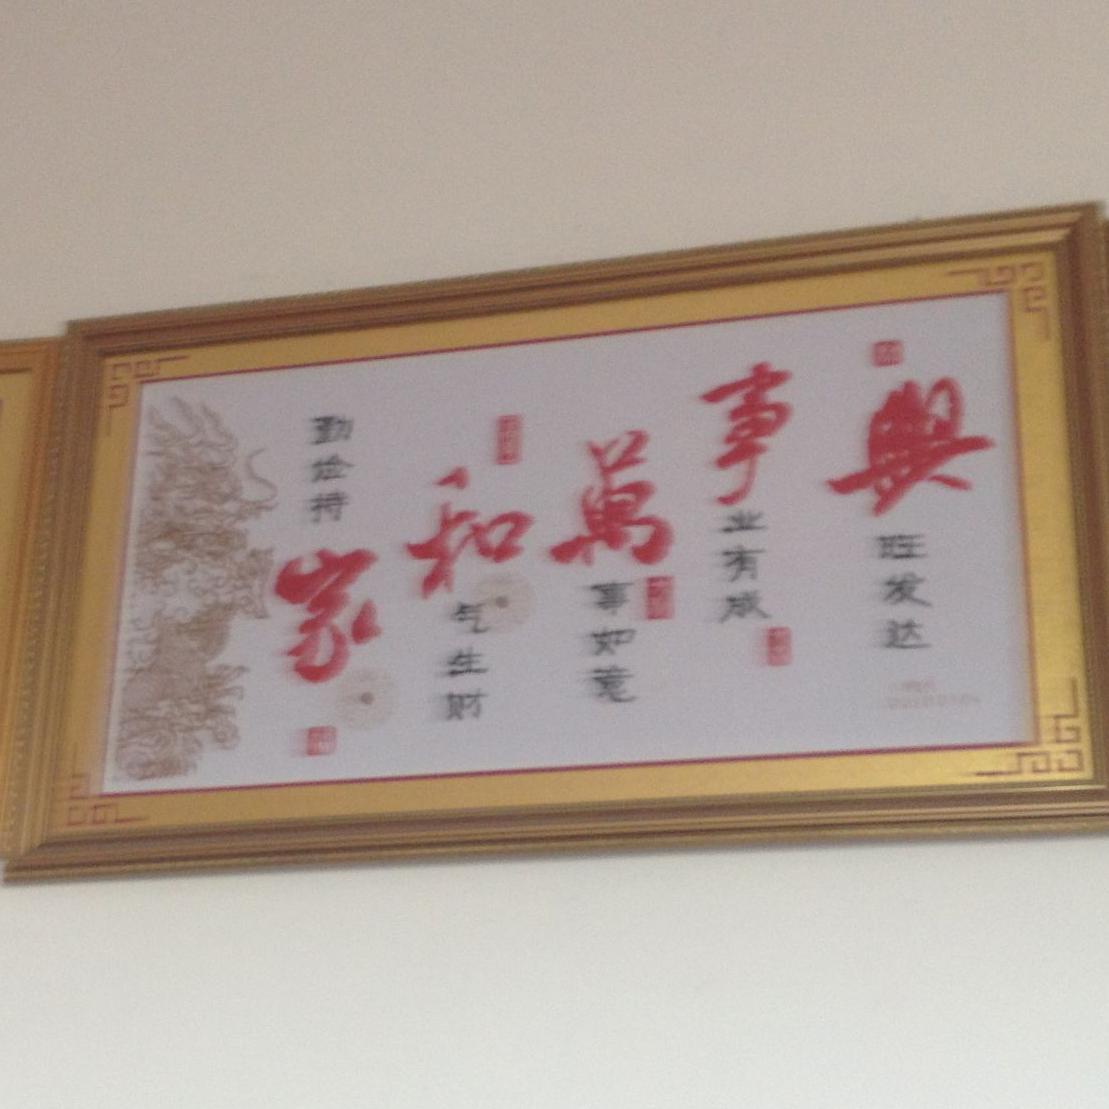 勤俭持家
和气生财
萬事如意
事业有成
興旺发达